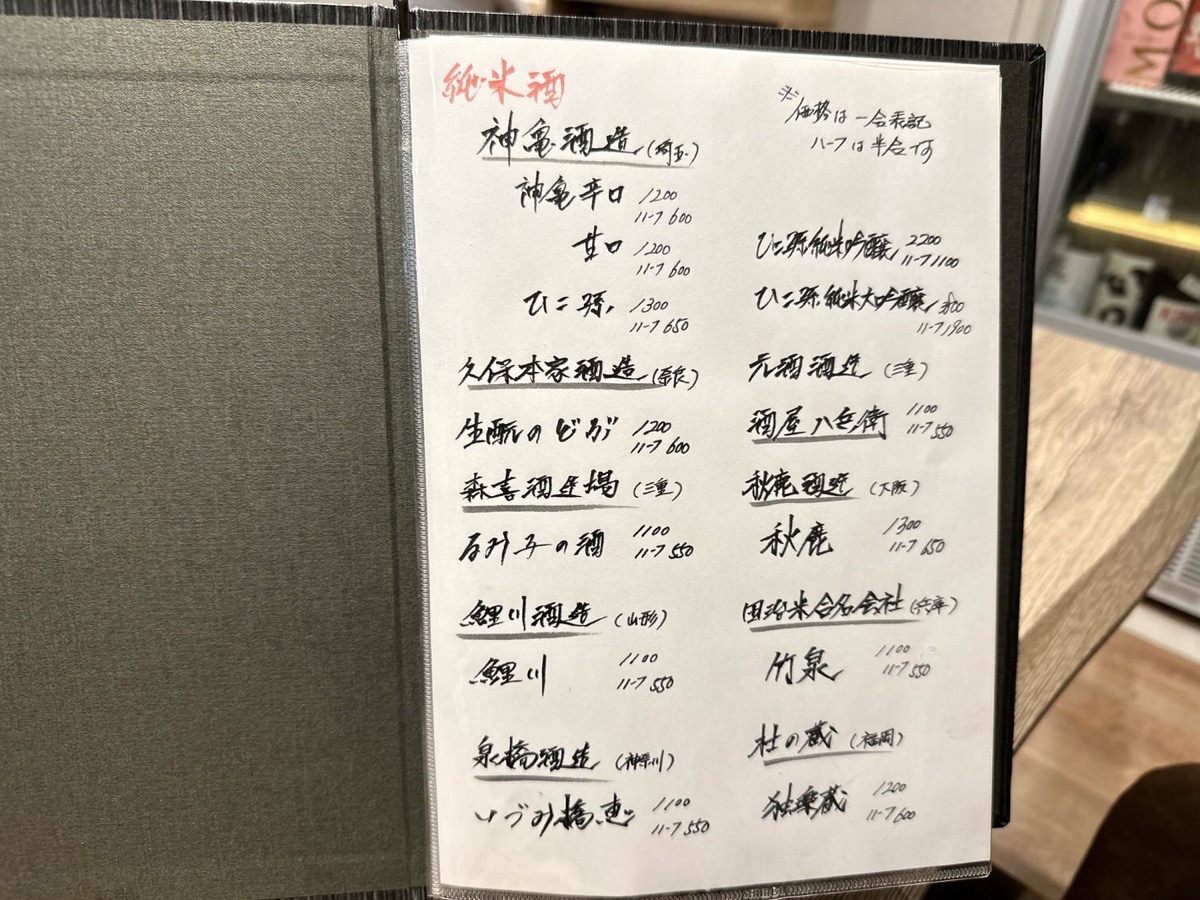 純米酒
※価格は一合表記
ハーフは半合です
神亀酒造(埼玉)
神亀辛口 1200
ハーフ 600
甘口 1200
ハーフ 600
ひこ孫 1300
ハーフ 650
久保本家酒造(奈良)
生酛のどぶ 1200
ハーフ 600
森喜酒造場(三重)
るみ子の酒 1100
ハーフ 550
鯉川酒造(山形)
鯉川 1100
ハーフ 550
泉橋酒造(神奈川)
いづみ橋恵 1100
ハーフ 550
ひこ孫純米吟醸 2200
ハーフ 1100
ひこ孫純米大吟醸
ハーフ 1900
元坂酒造(三重)
酒屋八兵衛 1100
ハーフ 550
秋鹿酒造(大阪)
秋鹿 1300
ハーフ 650
田治米合名会社(兵庫)
竹泉 1100
ハーフ 550
杜の蔵(福岡)
独楽蔵 1200
ハーフ 600
MO